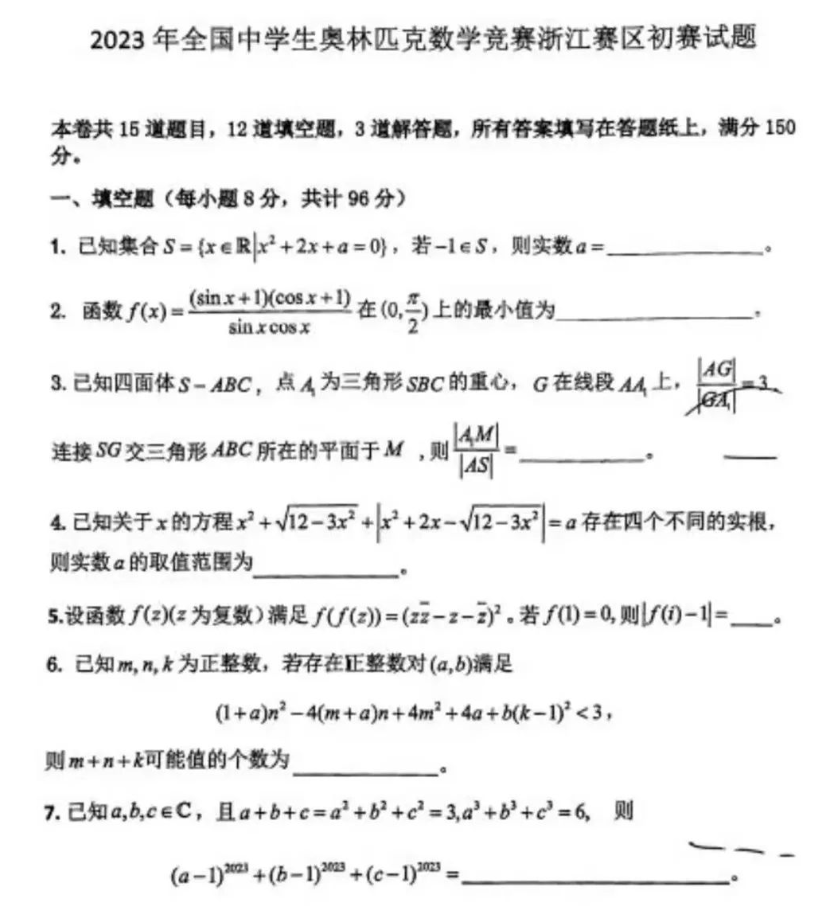 2023 年全国中学生奥林匹克数学竞赛浙江赛区初赛试题
本卷共 15 道题目，12 道填空题，3 道解答题，所有答案填写在答题纸上，满分 150
分。
一、填空题（每小题 8 分，共计 96 分）
1. 已知集合 S = {x∈ℝ|x²+2x+a=0}，若 −1∈S，则实数 a =________。
2. 函数 f(x) = (sin x+1)(cos x+1)/(sin x cos x) 在 (0, π/2) 上的最小值为________.
3. 已知四面体 S−ABC，点 A₁ 为三角形 SBC 的重心，G 在线段 AA₁ 上，|AG|/|GA₁| = 3，
连接 SG 交三角形 ABC 所在的平面于 M ，则 |A₁M|/|AS| =________。
4. 已知关于 x 的方程 x²+√(12−3x²)+|x²+2x−√(12−3x²)| = a 存在四个不同的实根，
则实数 a 的取值范围为________。
5.设函数 f(z)(z 为复数) 满足 f(f(z)) = (zz̄−z−z̄)²。若 f(1)=0, 则|f(i)−1|=____。
6. 已知 m, n, k 为正整数，若存在正整数对 (a,b) 满足
(1+a)n²−4(m+a)n+4m²+4a+b(k−1)²<3，
则 m+n+k 可能值的个数为________。
7. 已知 a,b,c∈C，且 a+b+c=a²+b²+c²=3,a³+b³+c³=6, 则
(a−1)²⁰²³+(b−1)²⁰²³+(c−1)²⁰²³ =________。